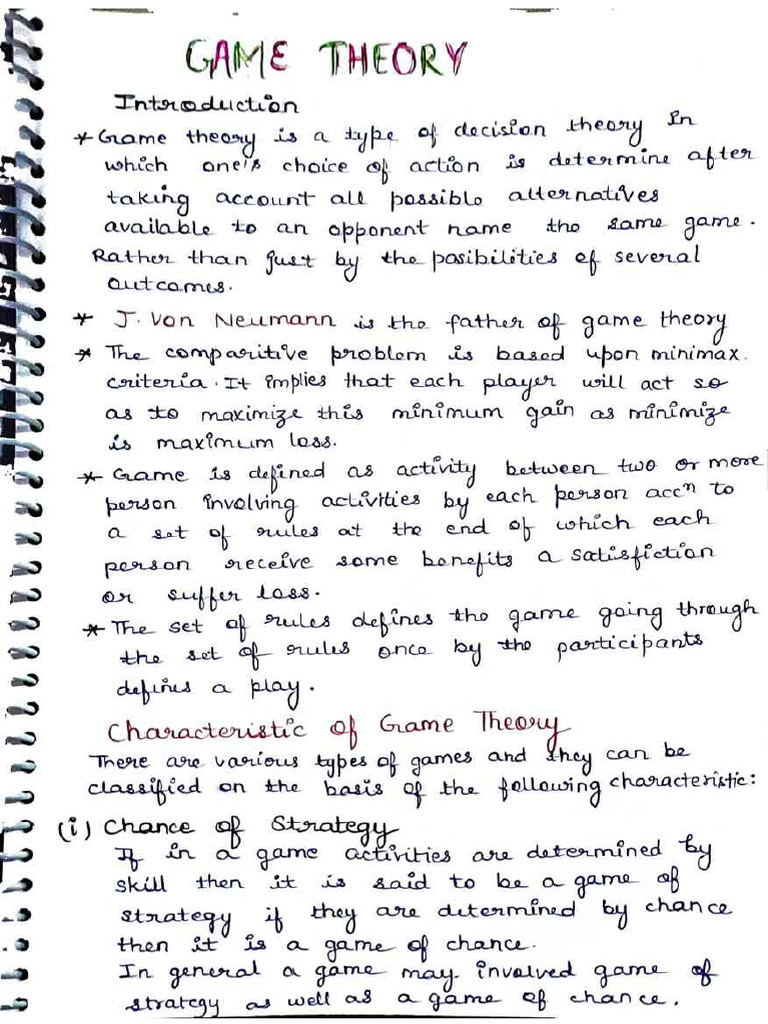 GAME THEORY
Introduction
* Game theory is a type of decision theory in
which one's choice of action is determine after
taking account all possible alternatives
available to an opponent name the same game.
Rather than just by the posibilities of several
outcomes.
* J. Von Neumann is the father of game theory
* The comparitive problem is based upon minimax.
criteria. It implies that each player will act so
as to maximize this minimum gain as minimize
is maximum loss.
* Game is defined as activity between two or more
person involving activities by each person accn to
a set of rules at the end of which each
person receive some benefits a satisfiction
or suffer loss.
* The set of rules defines the game going through
the set of rules once by the participants
defines a play.
Characteristic of Game Theory
There are various types of games and they can be
classified on the basis of the following characteristic:
(i) Chance of Strategy
If in a game activities are determined by
skill then it is said to be a game of
strategy if they are determined by chance
then it is a game of chance.
In general a game may involved game of
strategy as well as a game of chance.